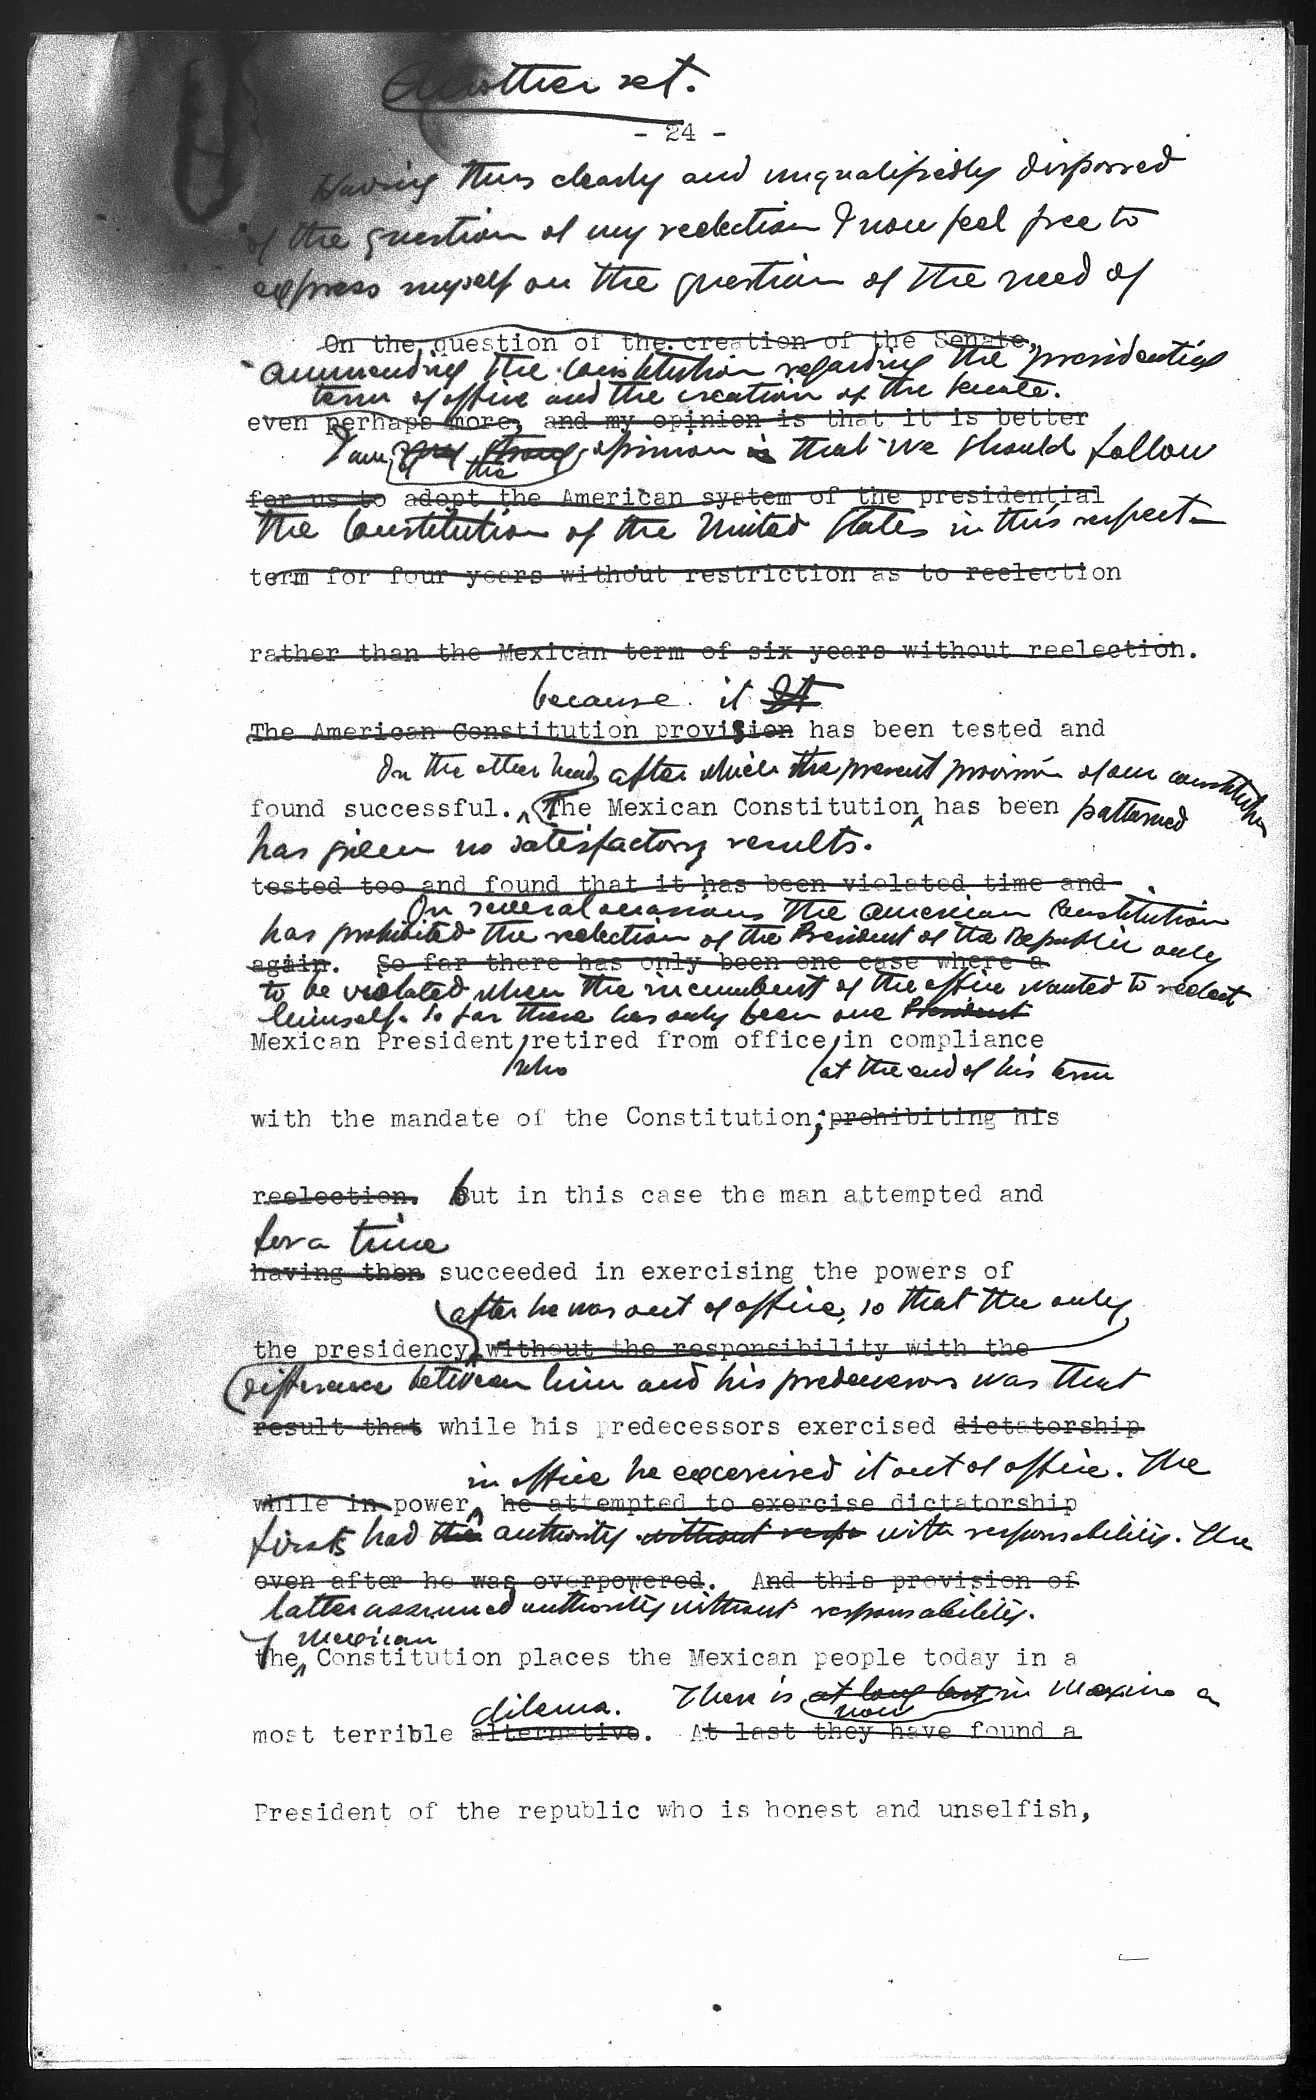 Another set.
- 24 -
Having thus clearly and unqualifiedly disposed
of the question of my reelection I now feel free to
express myself on the question of the need of
On the question of the creation of the Senate,
ammending the Constitution regarding the presidential
term of office and the creation of the Senate.
even perhaps more, and my opinion is that it is better
I am of the strong opinion is that we should follow
for us to adopt the American system of the presidential
the Constitution of the United States in this respect
term for four years without restriction as to reelection
rather than the Mexican term of six years without reelection.
because it It
The American Constitution provision has been tested and
On the other hand, after which the present provision of our constitution
found successful. The Mexican Constitution has been patterned
has given no satisfactory results.
tested too and found that it has been violated time and
On several occasions the American Constitution
has prohibited the reelection of the President of the Republic only
again. So far there has only been one case where a
to be violated when the incumbent of the office wanted to reelect
himself. So far there has only been one President
Mexican President retired from office in compliance
who at the end of his term
with the mandate of the Constitution; prohibiting his
reelection. but in this case the man attempted and
for a time
having then succeeded in exercising the powers of
after he was out of office, so that the only
the presidency, without the responsibility with the
difference between him and his predecessors was that
result that while his predecessors exercised dictatorship
in office he excercised it out of office. The
while in power he attempted to exercise dictatorship
firsts had the authority without respo with responsability. The
even after he was overpowered. And this provision of
latter assumed authority without responsability.
Mexican
the Constitution places the Mexican people today in a
dilema. There is at long last now in Mexico a
most terrible alternative. At last they have found a
President of the republic who is honest and unselfish,